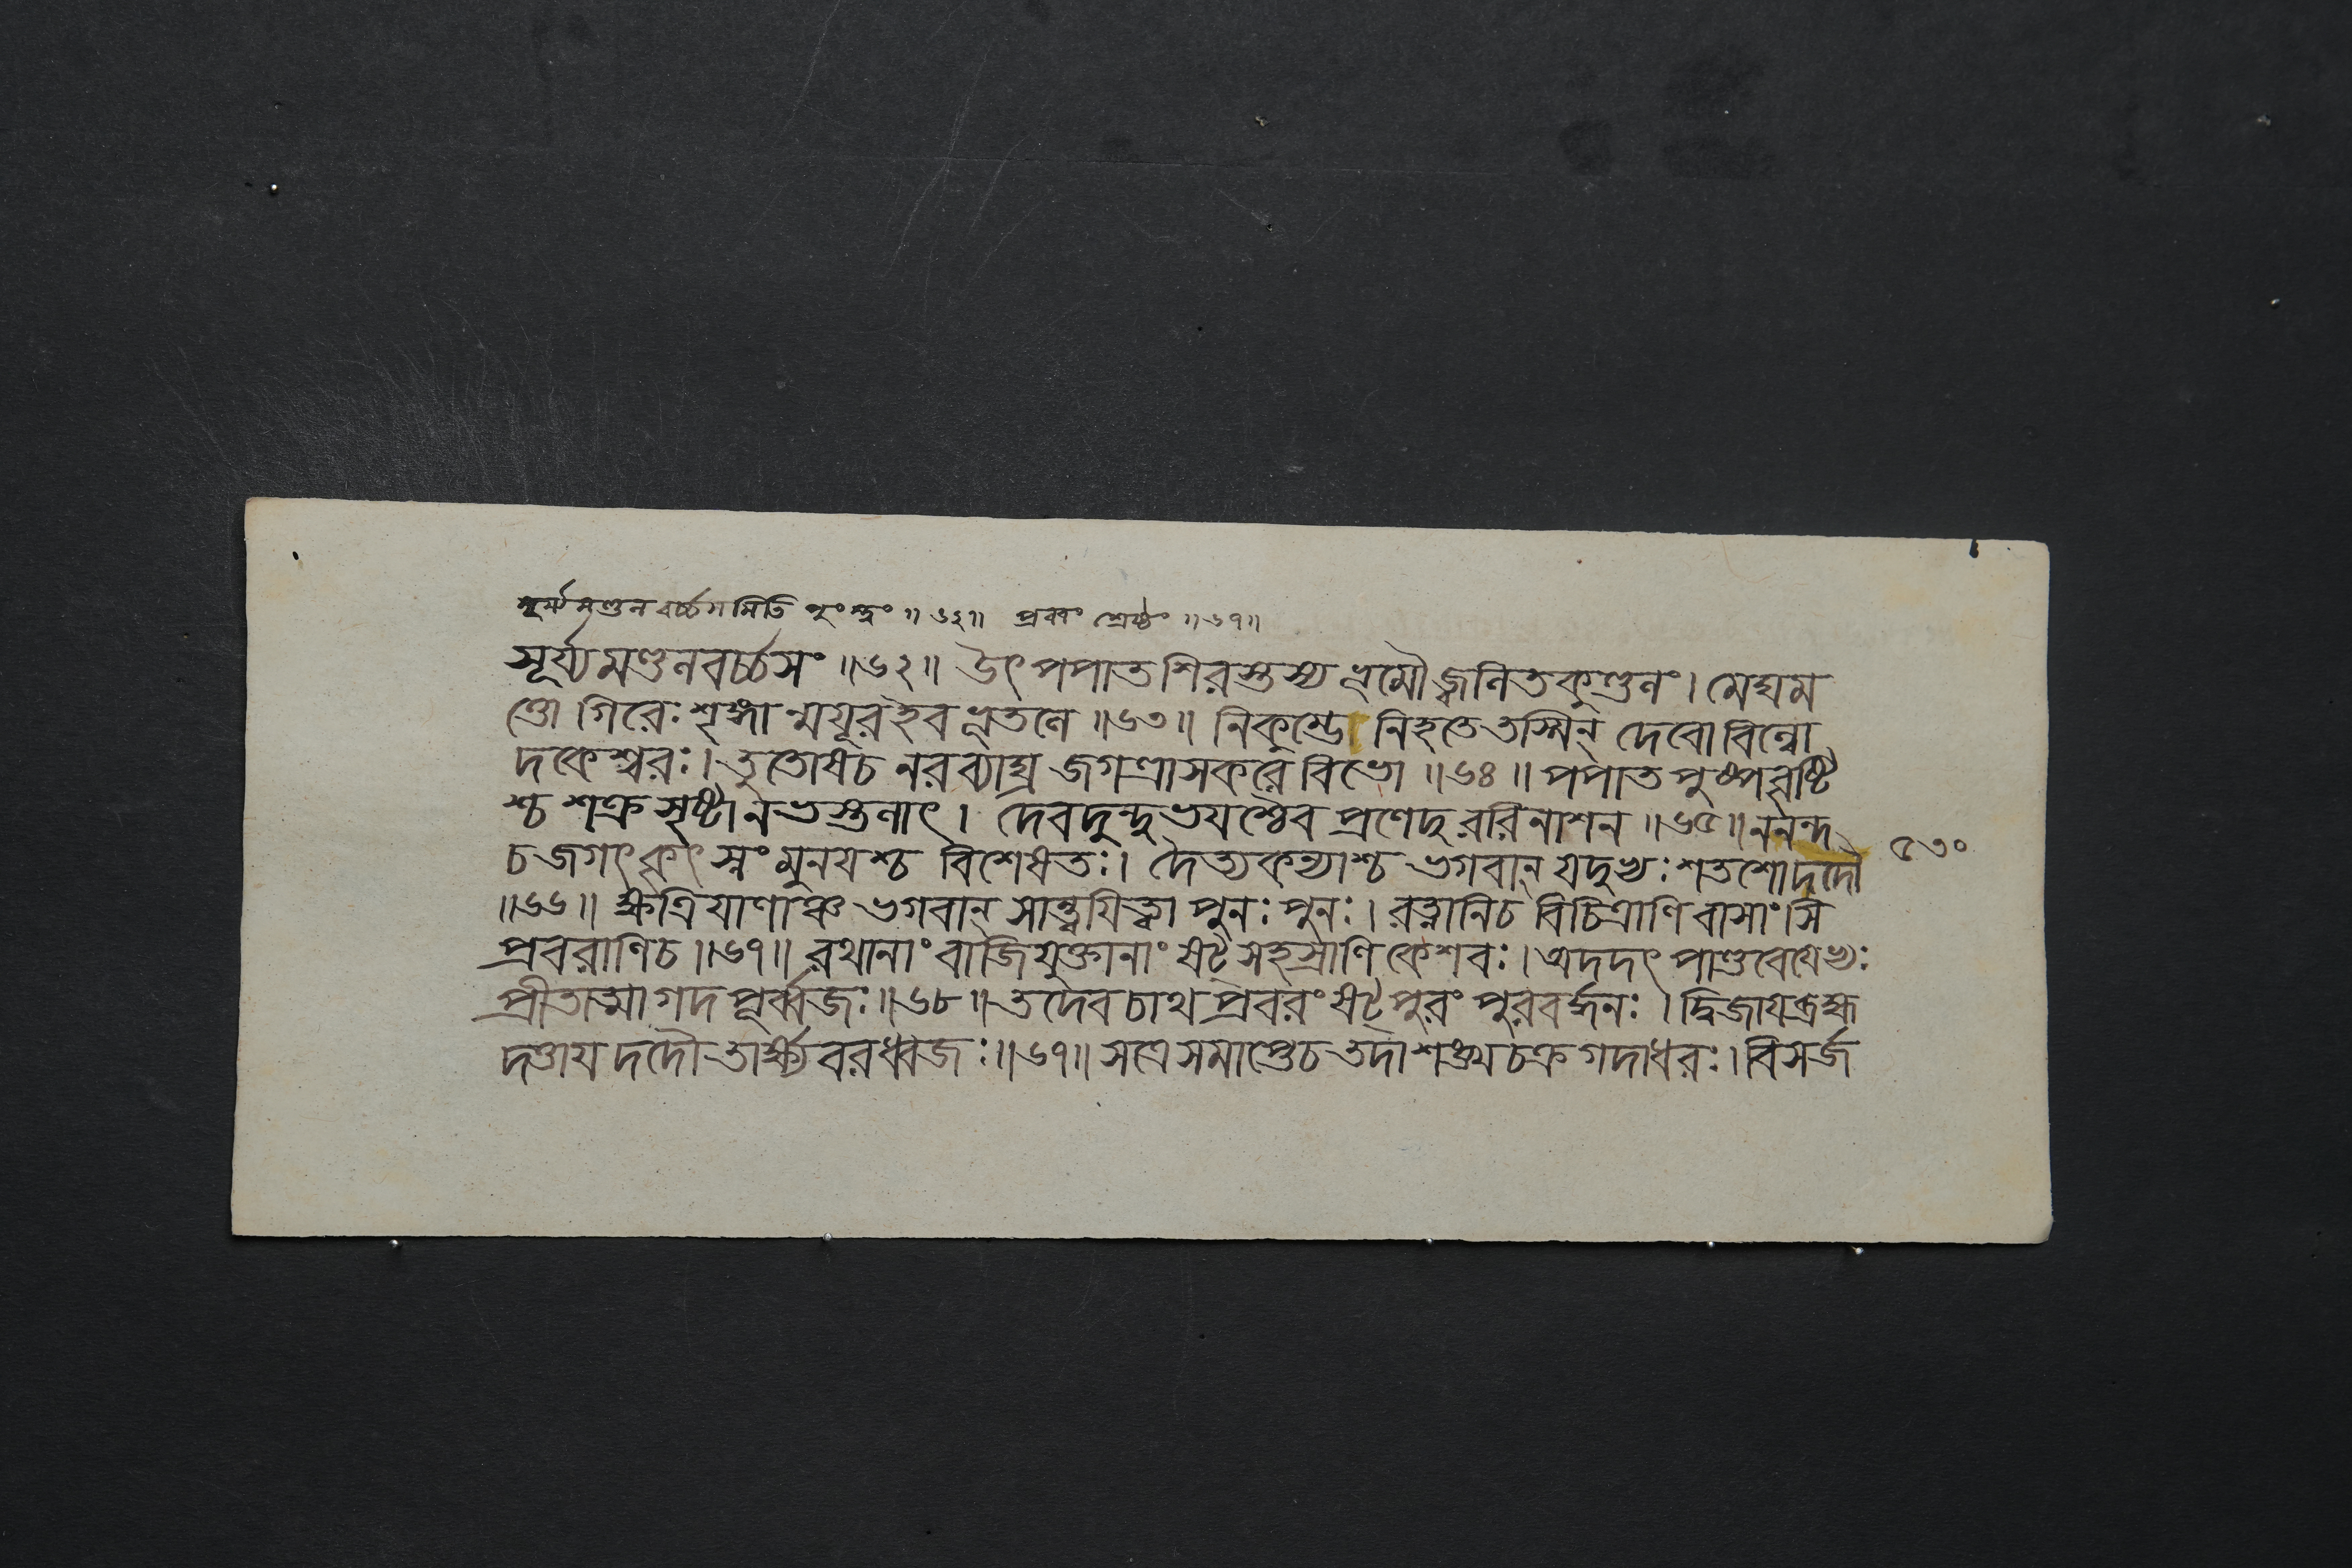 সূর্য্যমণ্ডলবর্চ্চসমিতি পুংস্ত্বং ॥৬২॥ প্রবরং শ্রেষ্ঠং ॥৬৭॥
সূর্য্যমণ্ডলবর্চ্চসং ॥৬২॥ উৎপপাত শিরস্তস্য ভূমৌ জ্বলিতকুণ্ডলং । মেঘম
ত্তো গিরেঃ শৃঙ্গান্ময়ূর ইব ভূতলে ॥৬৩॥ নিকুম্ভে নিহতে তস্মিন্ দেবো বিল্বো
দকেশ্বরঃ । তুতোষ চ নরব্যাঘ্র জগত্ত্রাসকরে বিভো ॥৬৪॥ পপাত পুষ্পবৃষ্টি
শ্চ শক্রসৃষ্টা নভস্তলাৎ । দেবদুন্দুভয়শ্চৈব প্রণেদুররিনাশন ॥৬৫॥ ননন্দ
চ জগৎ কৃৎস্নং মুনয়শ্চ বিশেষতঃ । দৈত্যকন্যাশ্চ ভগবান্ যদুভ্যঃ শতশো দদৌ
৫৩০
॥৬৬॥ ক্ষত্রিয়াণাঞ্চ ভগবান্ সান্ত্বয়িত্বা পুনঃ পুনঃ । রত্নানি চ বিচিত্রাণি বাসাংসি
প্রবরাণি চ ॥৬৭॥ রথানাং বাজিযুক্তানাং ষট্ সহস্রাণি কেশবঃ । অদদৎ পাণ্ডবেয়েভ্যঃ
প্রীতাত্মা গদপূর্ব্বজঃ ॥৬৮॥ তদেব চাথ প্রবরং ষট্পুরং পুরবর্দ্ধনঃ । দ্বিজায় ব্রহ্ম
দত্তায় দদৌ তার্ক্ষ্যবরধ্বজঃ ॥৬৯॥ সত্রে সমাপ্তে চ তদা শঙ্খচক্রগদাধরঃ । বিসর্জ